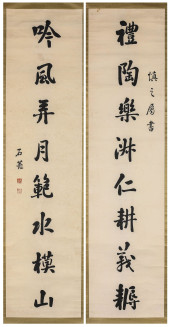 禮陶樂淑仁耕義耨
慎之屬書
吟風弄月範水模山
石菴